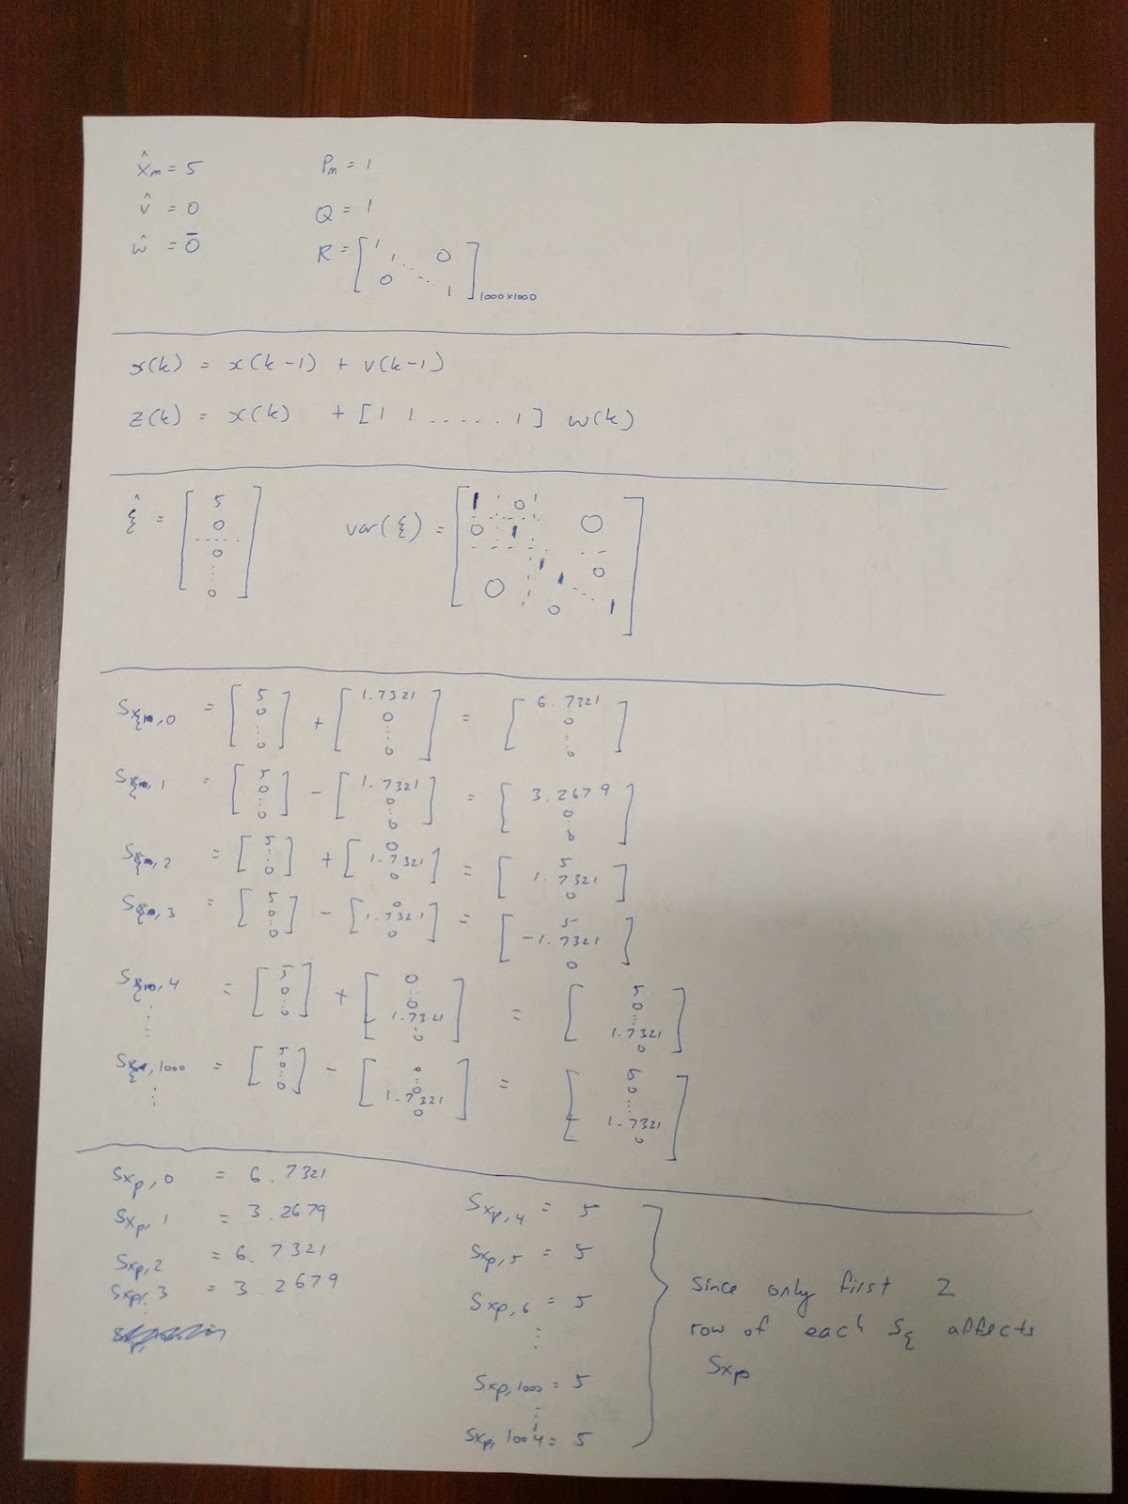 x̂m = 5    Pm = 1
v̂ = 0    Q = 1
ŵ = 0̄    R = [1 1 ⋱ 1, 0, 0] 1000x1000
x(k) = x(k-1) + v(k-1)
z(k) = x(k) + [1 1 ...... 1] w(k)
ξ̂ = [5 0 0 ⋮ 0]    var(ξ) = [1 0 0 0 1 0 1 1 ⋱ 0 0 1]
Sξ,0 = [5 0 ⋮ 0] + [1.7321 0 ⋮ 0] = [6.7321 0 ⋮ 0]
Sξ,1 = [5 0 ⋮ 0] - [1.7321 0 ⋮ 0] = [3.2679 0 ⋮ 0]
Sξ,2 = [5 ⋮ 0] + [0 1.7321 0] = [5 1.7321 0]
Sξ,3 = [5 0 ⋮ 0] - [0 1.7321 0] = [5 -1.7321 0]
Sξ,4 = [5 0 ⋮ 0] + [0 ⋮ 0 1.7321 ⋮ 0] = [5 0 ⋮ 1.7321 0]
⋮
Sξ,1000 = [5 0 ⋮ 0] - [0 ⋮ 0 1.7321 0] = [5 0 ⋮ -1.7321 0]
⋮
Sxp,0 = 6.7321
Sxp,1 = 3.2679
Sxp,2 = 6.7321
Sxp,3 = 3.2679
Sxp,4 = 5
Sxp,5 = 5
Sxp,6 = 5
⋮
Sxp,1000 = 5
⋮
Sxp,1004 = 5
Since only first 2
row of each Sξ affects
Sxp